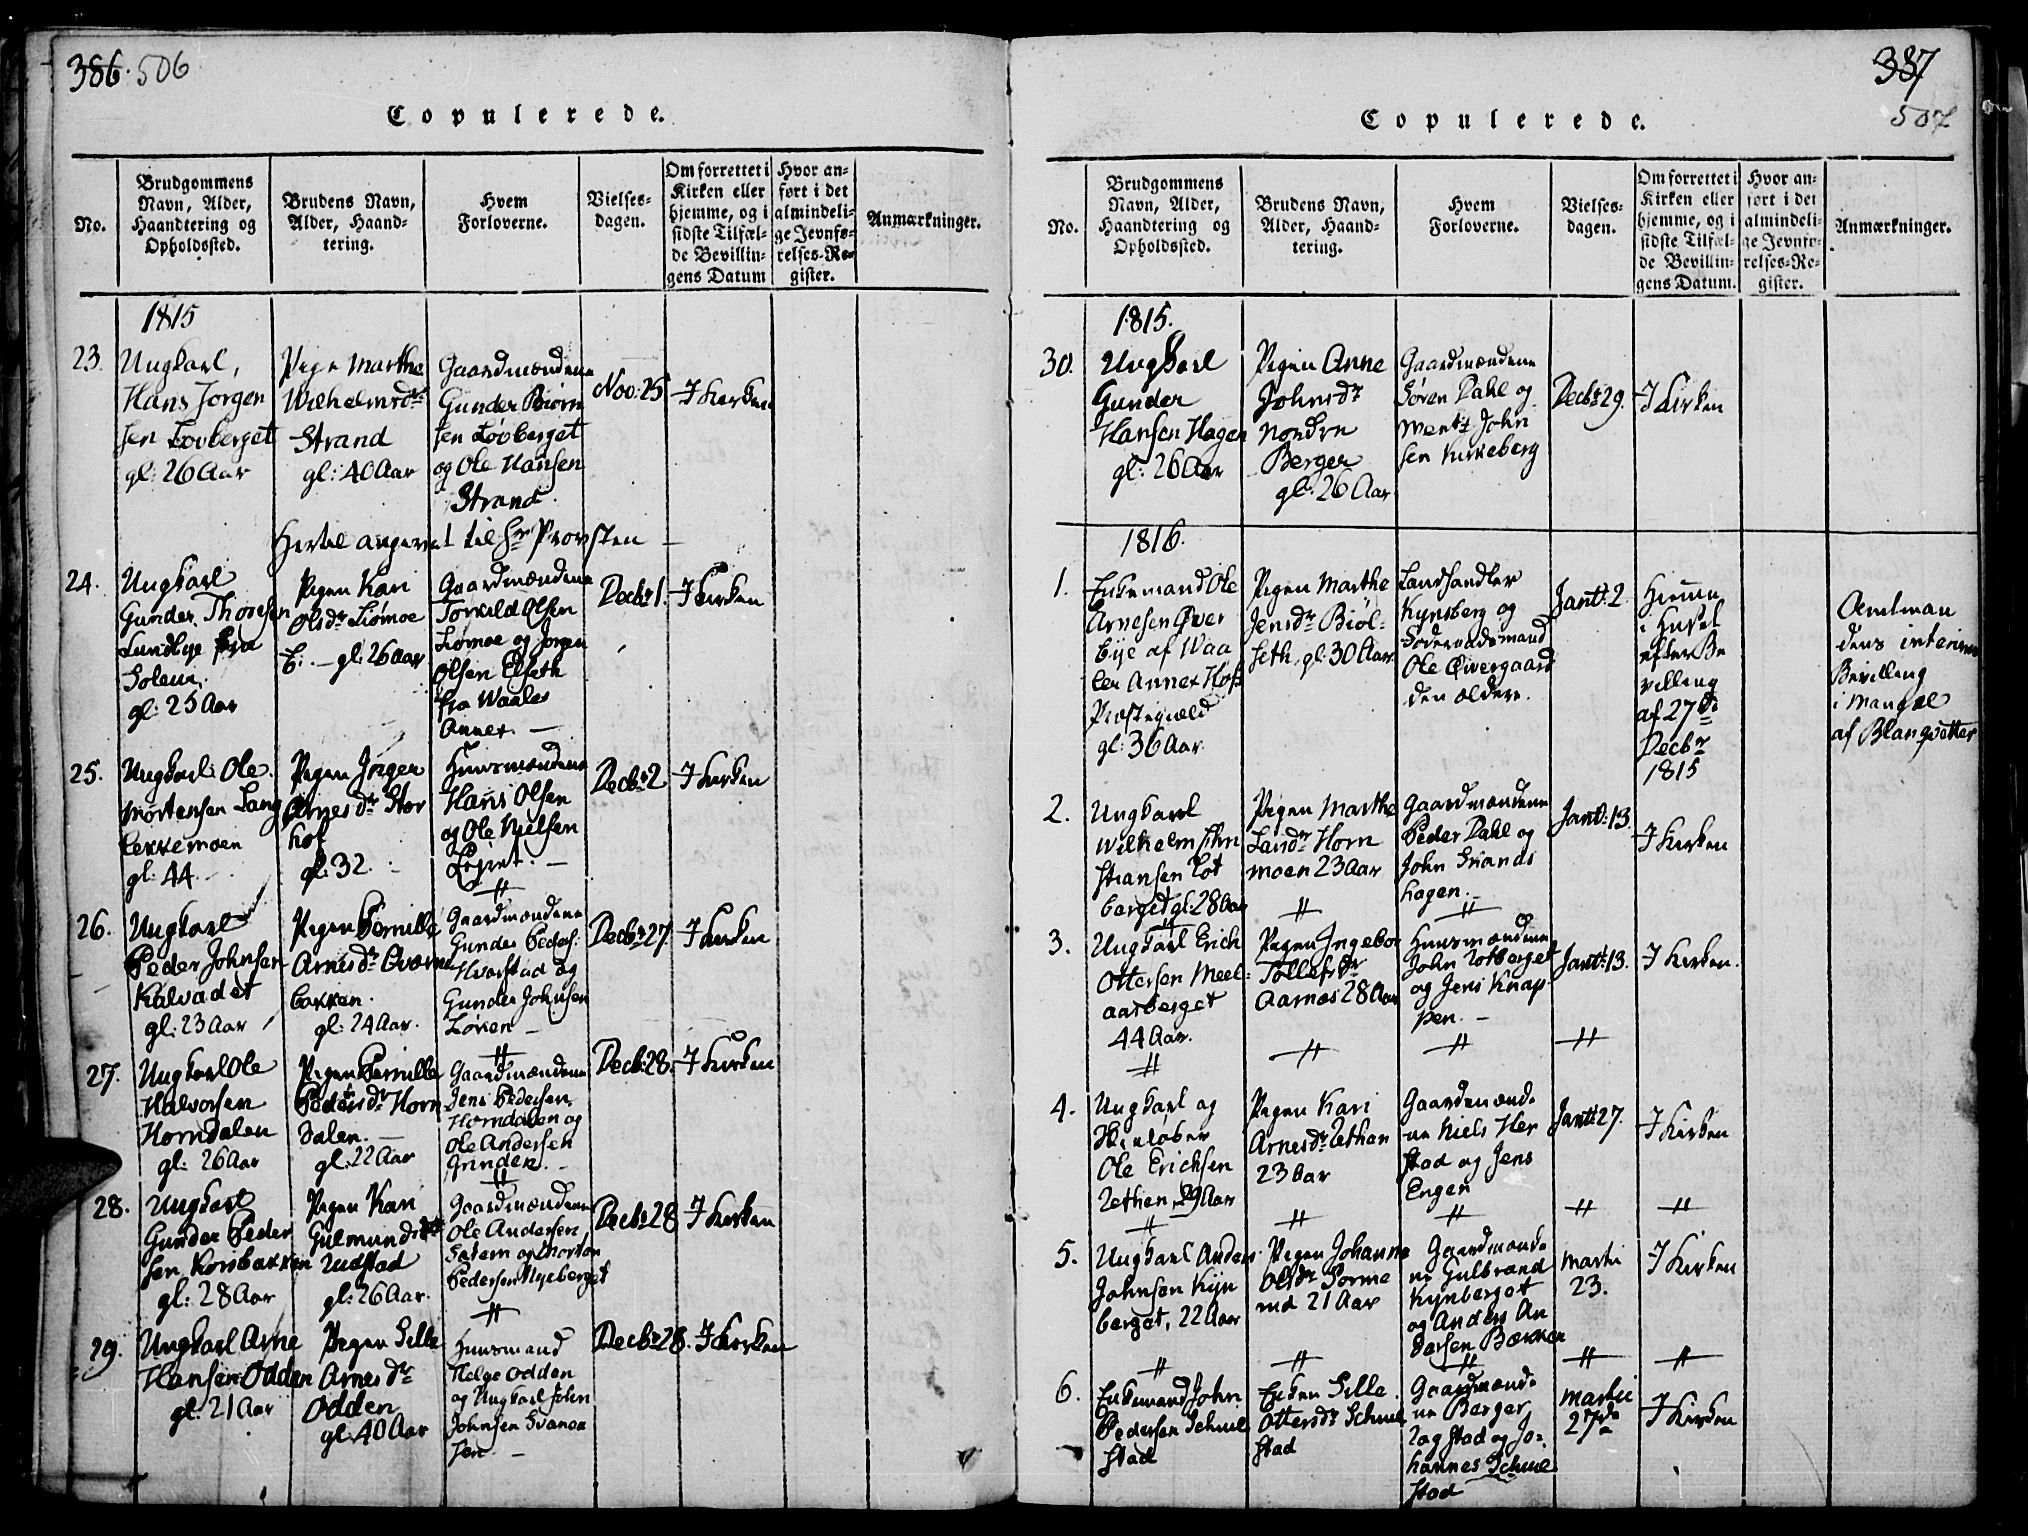 386. 506
Copulerede.
No.
Brudgommens
Navn, Alder,
Haandtering og
Opholdssted.
Brudens Navn,
Alder, Haand-
tering.
Hvem
Forloverne.
Vielses-
dagen.
Om forrettet i
Kirken eller
hjemme, og i
sidste Tilfæl-
de Bevillin-
gens Datum
Hvor an-
ført i det
almindeli-
ge Jevnfø-
relses-Re-
gister.
Anmærkninger.
1815
23.
Ungkarl,
Hans Jørgen
sen Lovberget
gl: 26 Aar
Pige Marthe
Wilhelmsdr
Strand
gl: 40 Aar
Gaardmændene
Gunder Biørn
sen Lovberget
og Ole Hansen
Strand
Nov: 25
I Kirken
Hertil angivet til Hr Provsten
24.
Ungkarl
Gunder Thoresen
Lundbye fra
Soleur.
gl: 25 Aar
Pigen Kari
Olsdr Liømoe
E: — gl: 26 aar
Gaardmændene
Torkild Olsen
Liømoe og Jørgen
Olsen Elseth
fra Waaler
Annex. —
Decbr 1.
I Kirken
25.
Ungkarl Ole
Mortensen Lang
bekkemoen
gl: 44.
Pigen Jørgen
Arnesdr Stor
hof
gl: 32.
Huusmændene
Hans Olsen
og Ole Nielsen
Decbr 2
I Kirken
26.
Ungkarl
Peder Johnsen
Kalvadet
gl: 23 Aar
Pigen Pernille
Arnesdr Qværne
bakken.
gl: 24 Aar.
Gaardmændene
Gunder Peders:
Hvarstad og
Gunder Johnsen
Løken —
Decbr 27.
I Kirken
27.
Ungkarl Ole
Halvorsen
Horndalen
gl: 26 Aar
Pigen Pernille
Pedersdr Horn
dalen. —
gl: 22 Aar
Gaardmændene
Jens Pedersen
Horndalen og
Ole Andersen
Grinden. —
Decb: 28.
I Kirken
28.
Ungkarl
Gunder Peder
sen Korsbakken
gl: 28 Aar
Pigen Kari
Gulmundsdr
Rudstad
gl: 26 Aar.
Gaardmændene
Ole Andersen
Sætern og Morten
Pedersen Nyeberget
Decbr 28
I Kirken
29.
Ungkarl Arne
Hansen Odden
gl: 21 Aar
Pigen Sille
Arnesdr
Odden
gl: 40 Aar
Huusmand
Helge Odden
og Ungkarl John
Johnsen Svenaa
sen. —
Decbr 28.
I Kirken
387
507
Copulerede.
No.
Brudgommens
Navn, Alder,
Haandtering og
Opholdssted.
Brudens Navn,
Alder, Haand-
tering.
Hvem
Forloverne.
Vielses-
dagen.
Om forrettet i
Kirken eller
hjemme, og i
sidste Tilfæl-
de Bevillin-
gens Datum.
Hvor an-
ført i det
almindeli-
ge Jevnfø-
relses-Re-
gister.
Anmærkninger.
1815.
30.
Ungkarl
Gunder
Hansen Hagen
gl: 26 Aar
Pigen Anne
Johnsdr
Nordre
Berger
gl: 26 Aar
Gaardmændene
Søren Dahl og
John
sen Kirkeberg
Decbr 29.
I Kirken
1816.
1.
Enkemand Ole
Arnesen Øver
bye af Waa
ler Annex Hof
Præstegield
gl: 36 Aar.
Pigen Marthe
Jensdr Biøl-
seth, gl: 30 Aar.
Landhandler
Kynsberg og
Ole Øvergaard
den ældere.
Jan: 2.
Hiemme
i Huset
efter Be
villing
af 27de
Decbr
1815
Amtman
dens interims
Bevilling
i Mangel
af Blanqvetter
2.
Ungkarl
Wilhelm Chri
stiansen Rot
berget gl: 28 Aar
Pigen Marthe
Larsdr Horn
moen 23 Aar
Gaardmændene
Peder Dahl og
John Svends
hagen. —
Jan: 13
I Kirken
3.
Ungkarl Erich
Ottersen Meel-
aasberget
44 Aar.
Pigen Ingebor
Tollefsdr
Aarnæs 28 Aar
Huusmændene
John Rotberget
og Jens Knap
pen. —
Jan: 13.
I Kirken.
4.
Ungkarl og
Skieløber
Ole Erichsen
Rethen, 29 Aar
Pigen Kari
Arnesdr Rethen
23 aar
Gaardmænd-
ne Niels Her
stad og Jens
Engen
Jan: 27.
I Kirken
5.
Ungkarl Anders
Johnsen Kyn
berget, 22 Aar
Pigen Johanne
Olsdr Sorme
rud 21 Aar
Gaardmænde
ne Gulbrand
Kynberget
og Anders An
dersen Bekken
Martii
23.
I Kirken
6.
Enkemand John
Pedersen Schuel
stad
Enken Sille
Ottersdr Schuel
stad
Gaardmænde
ne Berger
Rogstad og Jo-
hannes Schuel
stad
Martii
27de
I Kirken